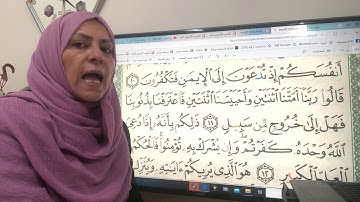 أَنفُسَكُمْ إِذْ تُدْعَوْنَ إِلَى ٱلْإِيمَٰنِ فَتَكْفُرُونَ ١٠
قَالُوا۟ رَبَّنَآ أَمَتَّنَا ٱثْنَتَيْنِ وَأَحْيَيْتَنَا ٱثْنَتَيْنِ فَٱعْتَرَفْنَا بِذُنُوبِنَا
فَهَلْ إِلَىٰ خُرُوجٍ مِّن سَبِيلٍ ١١ ذَٰلِكُم بِأَنَّهُۥٓ إِذَا دُعِىَ
ٱللَّهُ وَحْدَهُۥ كَفَرْتُمْ وَإِن يُشْرَكْ بِهِۦ تُؤْمِنُوا۟ فَٱلْحُكْمُ
ٱلْكَبِيرِ ١٢ هُوَ ٱلَّذِى يُرِيكُمْ ءَايَٰتِهِۦ وَيُنَزِّلُ